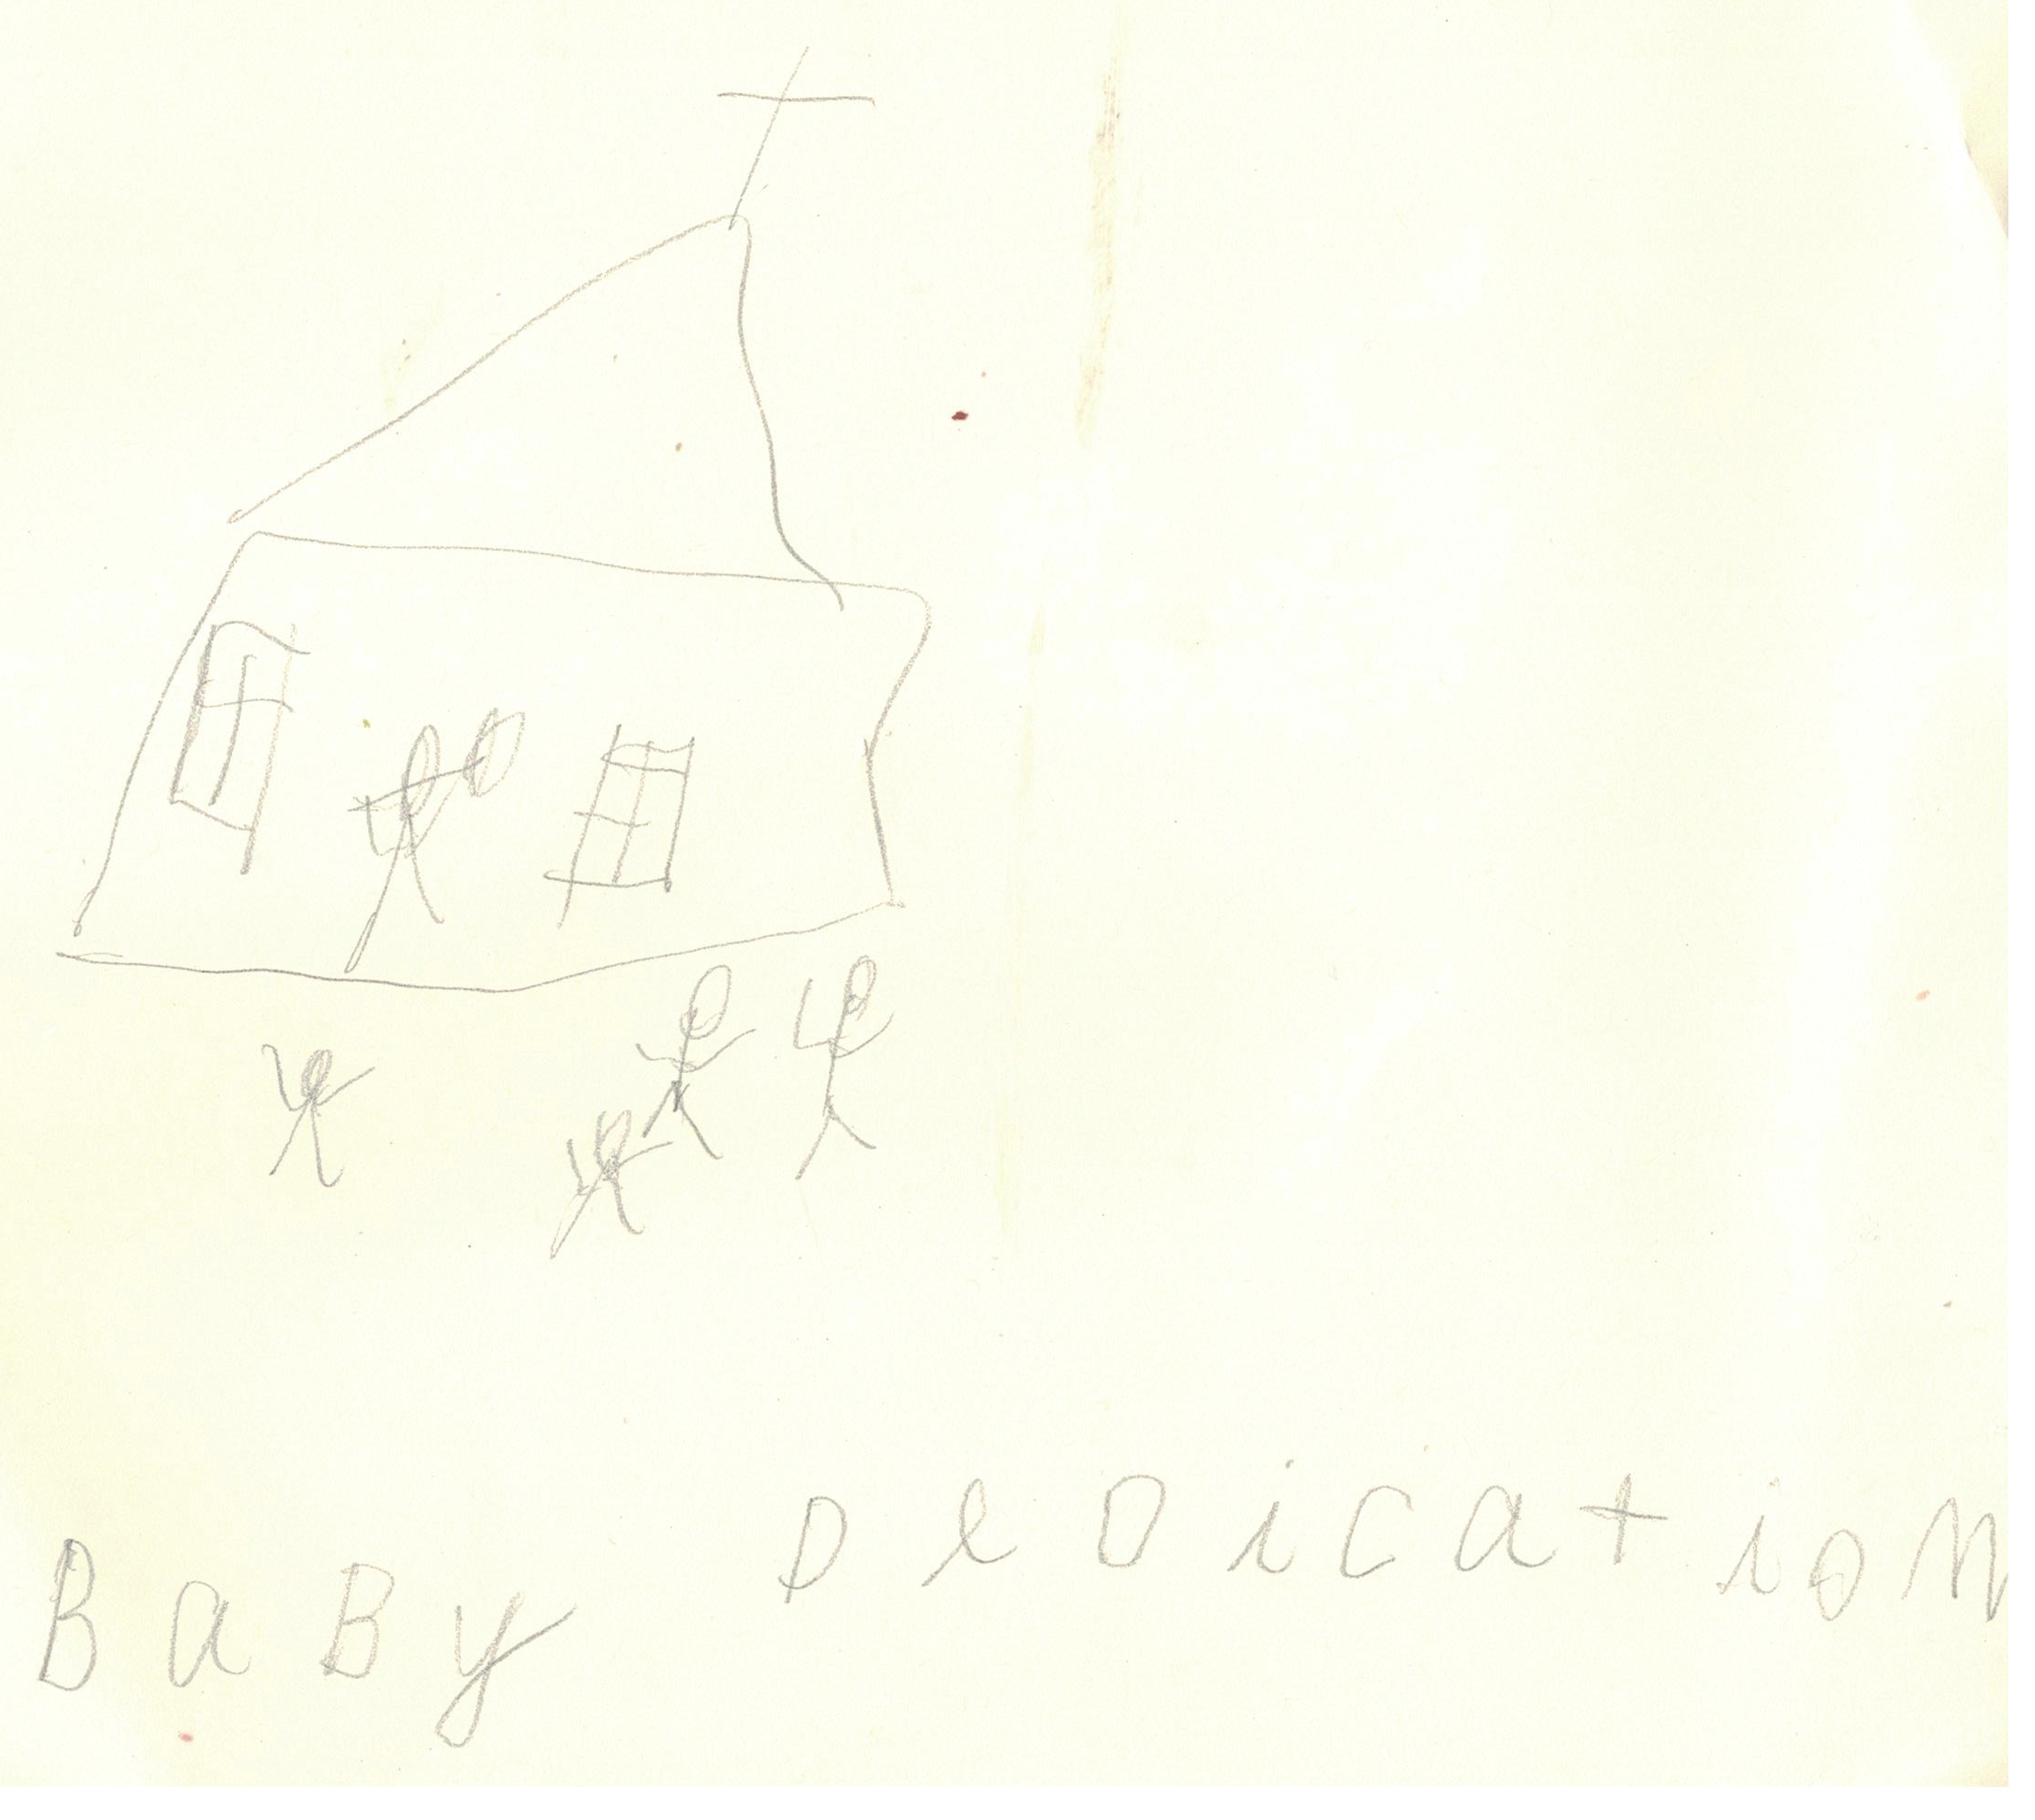 BaBy DeDicatioN